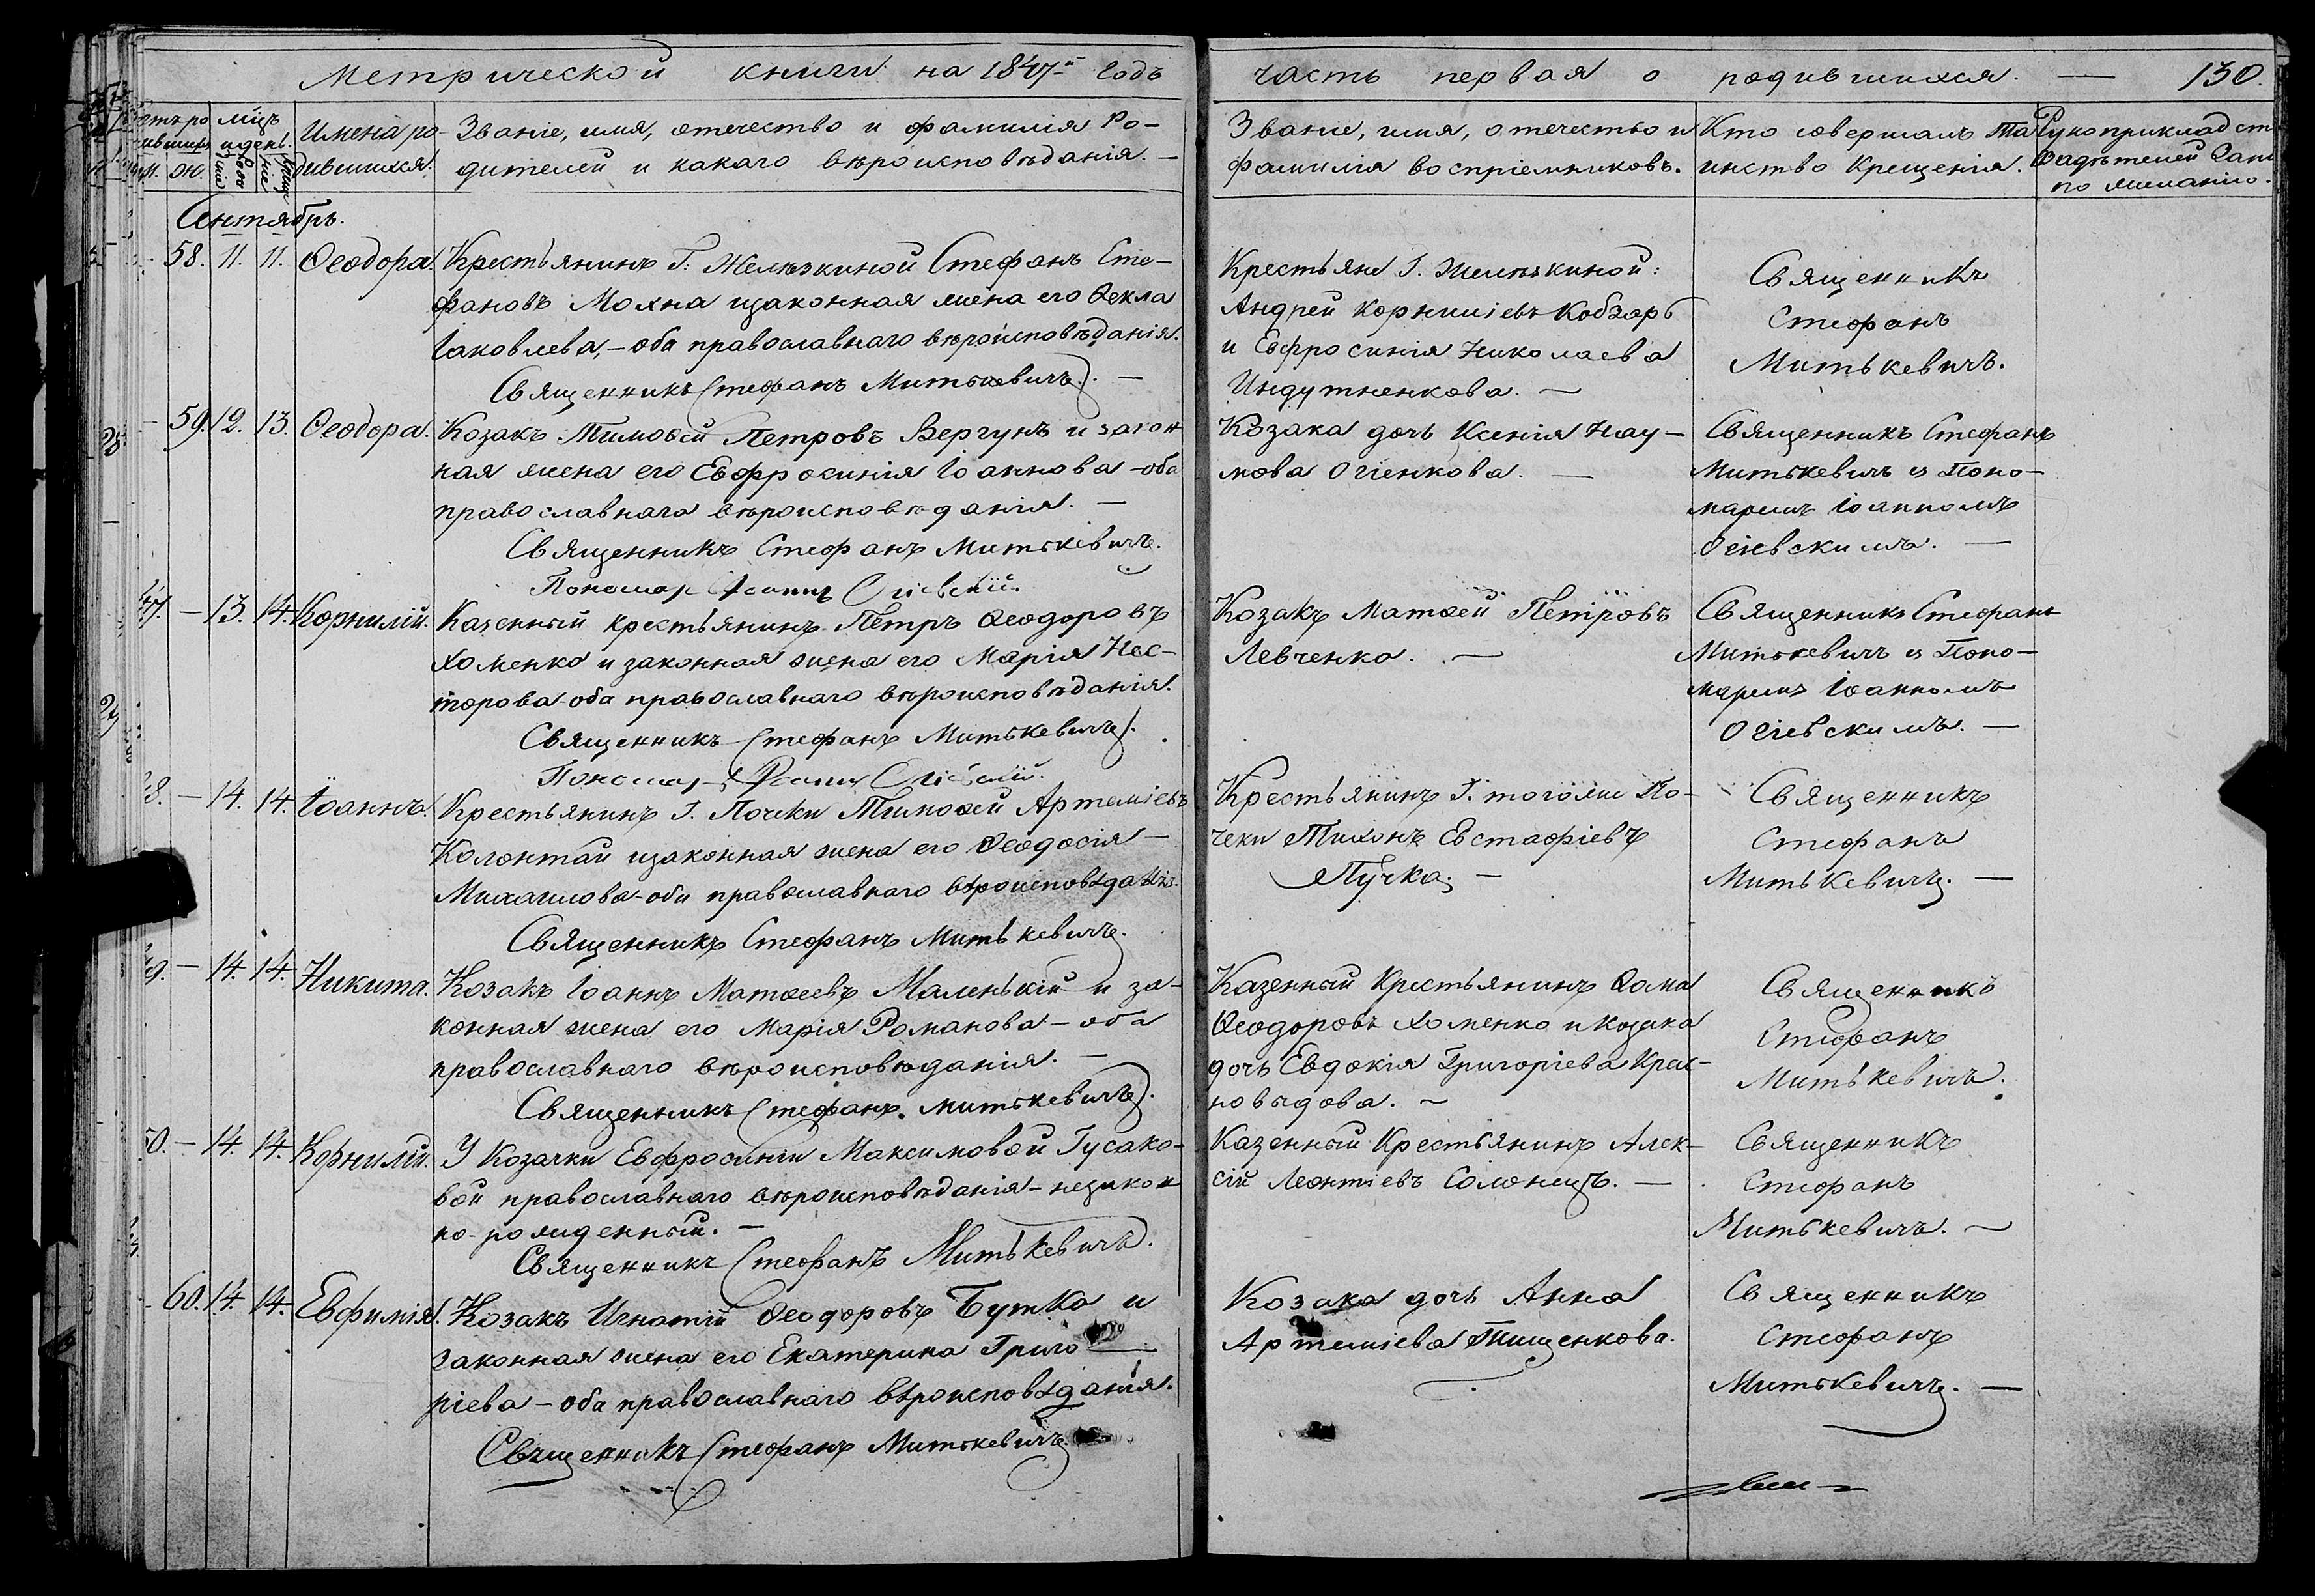 Метрической книги на 1847й Годъ
часть первая о родившихся. — 130.
мцъ
и день.
Имена ро-
дившихся.
Званіе, имя, отечество и фамилія Ро-
дителей и какаго вѣроисповѣданія. —
Званіе, имя, отечество и
фамилія воспріемниковъ.
Кто совершалъ Та
инство Крещенія.
Рукоприкладст
Свидѣтелей Запи
по желанію.
м. ж.
Сентябрь.
58. 11. 11. Ѳеодора.
Крестьянинъ Г. Желѣзкиной Стефанъ Сте-
фановъ Мохна изаконная жена его Ѳекла
Іаковлева, – оба православнаго вѣроисповѣданія.
Священникъ Стефанъ Митькевичъ. —
Крестьяне Г. Желѣзкиной:
Андрей Корниліевъ Кобзарь
и Евфросинія Николаева
Индутненкова. —
Священникъ
Стефанъ
Митькевичъ.
— 59. 12. 13. Ѳеодора.
Козакъ Тимоѳей Петровъ Вергунъ и закон
ная жена его Евфросинія Іоаннова – оба
православнаго вѣроисповѣданія. —
Священникъ Стефанъ Митькевичъ.
Пономарь Іоаннъ Огіевскій.
Козака дочь Ксенія Нау-
мова Огіенкова. —
Священникъ Стефанъ
Митькевичъ з Поно-
маремъ Іоанномъ
Огіевскимъ. —
47. — 13. 14. Корнилій.
Казенный крестьянинъ Петръ Ѳеодоровъ
Хоменко и законная жена его Марія Нес-
торова – оба православнаго вѣроисповѣданія.
Священникъ Стефанъ Митькевичъ.
Пономарь Іоаннъ Огіевскій.
Козакъ Матѳей Петровъ
Левченко. —
Священникъ Стефанъ
Митькевичъ з Поно-
маремъ Іоанномъ
Огіевскимъ. —
8. — 14. 14. Іоаннъ.
Крестьянинъ Г. Почеки Тимоѳей Артеміевъ
Колонтай изаконная жена его Ѳеодосія —
Михаилова – оби православнаго вѣроисповѣданія.
Священникъ Стефанъ Митькевичъ.
Крестьянинъ Г. тогожъ По-
чеки Тихонъ Евстафіевъ
Пучка. —
Священникъ
Стефанъ
Митькевичъ. —
9. — 14. 14. Никита.
Козакъ Іоаннъ Матѳеевъ Маленькій и за-
конная жена его Марія Романова – оба
православнаго вѣроисповѣданія. —
Священникъ Стефанъ Митькевичъ.
Казенный Крестьянинъ Ѳома
Ѳеодоровъ Хоменко и козака
дочь Евдокія Григоріева Крас-
новыдова. —
Священникъ
Стефанъ
Митькевичъ.
50. — 14. 14. Корнилій.
У Козачки Евфросиніи Максимовой Гусако-
вой православнаго вѣроисповѣданія – незакон
но-рожденный. —
Священникъ Стефанъ Митькевичъ.
Казенный Крестьянинъ Алек-
сій Леонтіевъ Солонецъ. —
Священникъ
Стефанъ
Митькевичъ. —
- 60. 14. 14. Евфимія.
Козакъ Игнатій Ѳеодоровъ Бутко и
законная жена его Екатерина Григо
ріева – оба православнаго вѣроисповѣданія.
Священникъ Стефанъ Митькевичъ.
Козака дочь Анна
Артеміева Тищенкова.
Священникъ
Стефанъ
Митькевичъ. —